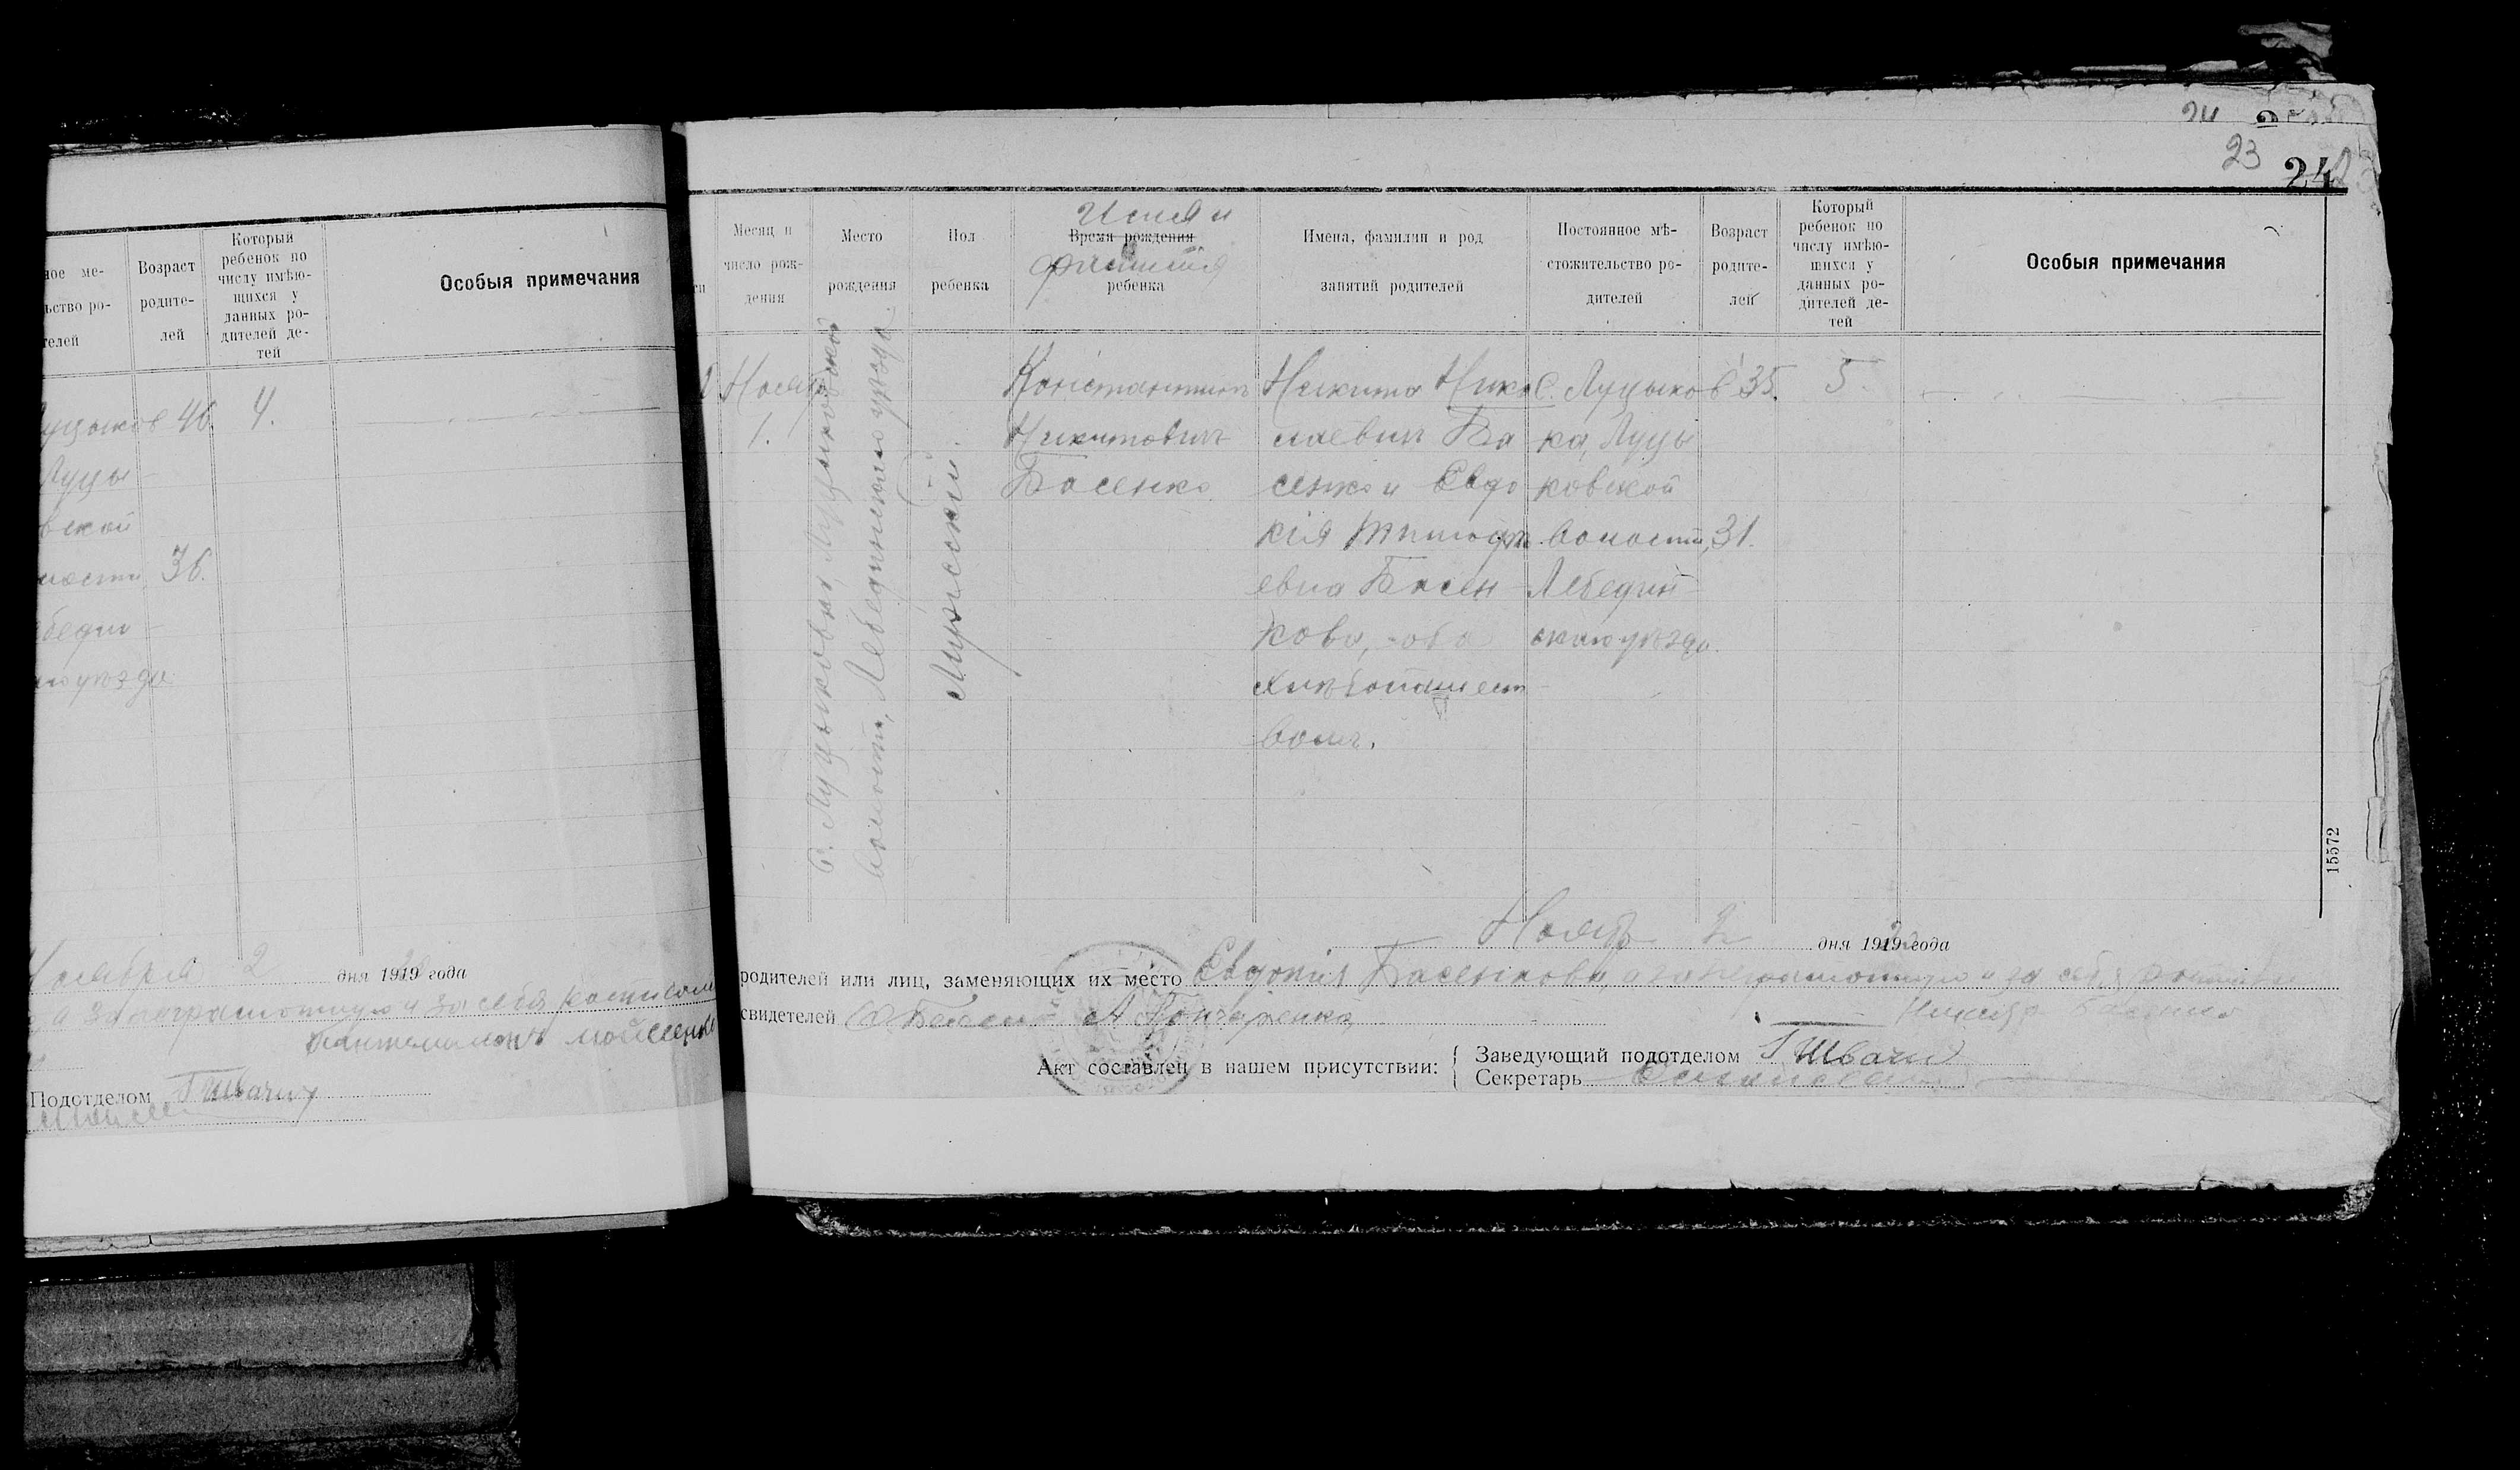 24
23 24
ное ме-
ьство ро-
телей
Возраст
родите-
лей
Который
ребенок по
числу имѣю-
щихся у
данных ро-
дителей де-
тей
Особыя примечания
уцыков 46. 4.
Луцы-
вской
мости 36.
бедин-
го уѣзда.
Ноября 2 дня 1919 года
и за неграмотную и за себя росписался
Пантелимонъ Мойсеенко
Подотделом ГШвачи
Месяц и
число рож-
дения
Место
рождения
Пол
ребенка
Имя и
Время рождения
фамилия
ребенка
Имена, фамилии и род
занятий родителей
Постоянное мѣ-
стожительство ро-
дителей
Возраст
родите-
лей
Который
ребенок по
числу имѣю-
шихся у
данных ро-
дителей де-
тей
Особыя примечания
Нояб.
1.
С. Луцыковка, Луцыковской
волости, Лебединского уѣзда.
Мужской.
Константинъ
Никитовичъ
Басенко
Никита Нико
лаевич Ба
сенко и Евдо
кія Тимофѣ
евна Басен
кова, оба
хлѣбопашест
вомъ.
С. Луцыков
ка, Луцы
ковской
волости,
Лебедин-
скаго уѣзда.
35.
31.
5.
15572
Нояб. 2 дня 1919 года
родителей или лиц, заменяющих их место Евдокия Басенкова, а за неграмотную и за себя
Никита Басенко
свидетелей А Гончаренко
Акт составлен в нашем присутствии:
Заведующий подотделом ГШвачи
Секретарь